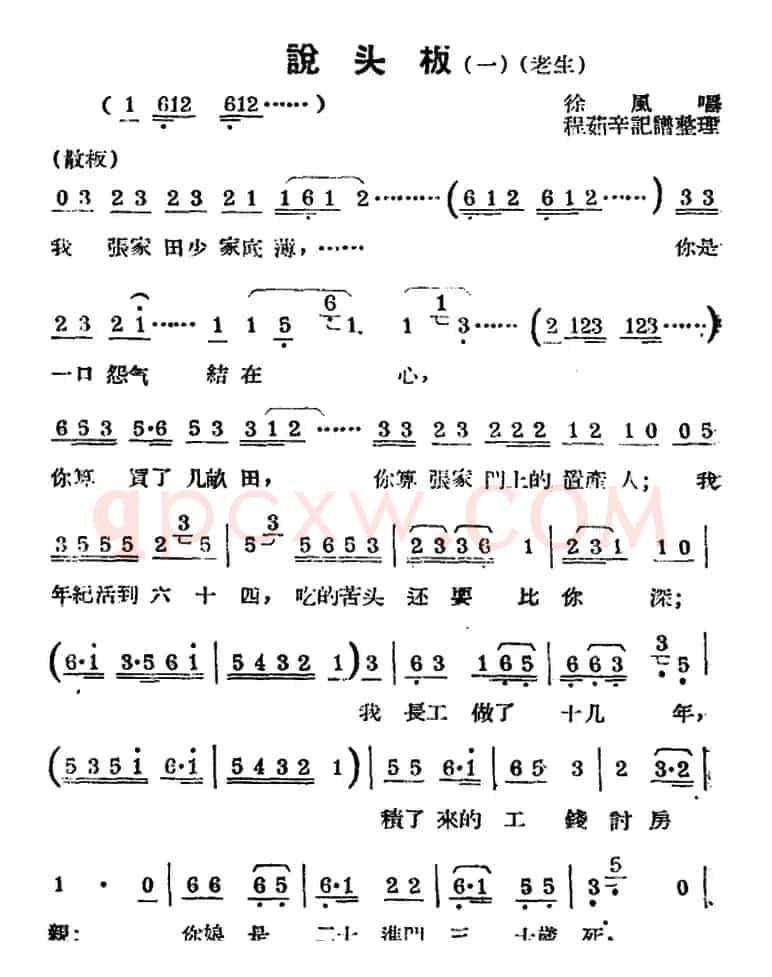 說头板(一)(老生)
(1 612 612……)
徐風唱
程茹辛記譜整理
(散板)
03 23 23 21 161 2………(612 612………) 33
我 張家田少家底薄，…… 你是
23 2i…… 1 1 5 6 1. 1 1 3……(2 123 123……)
一口怨气 結在 心，
653 5·6 53 312…… 33 23 222 12 10 05
你算 買了几畝田， 你算張家門上的置產人；我
qpcxw.COM
3555 2 3 5 | 5 3 5653 | 2336 1 | 231 10 |
年紀活到六十四，吃的苦头还要比你深；
(6·i 3·56i | 5432 1) 3 | 63 165 | 663 3 5 |
我長工做了十几年，
(535i 6·i | 5432 1) | 55 6·i | 65 3 | 2 3·2 |
積了来的工錢討房
1 · 0 | 66 65 | 6·1 22 | 6·1 55 | 3 5 0 |
親；你娘是二十進門三十歲死，